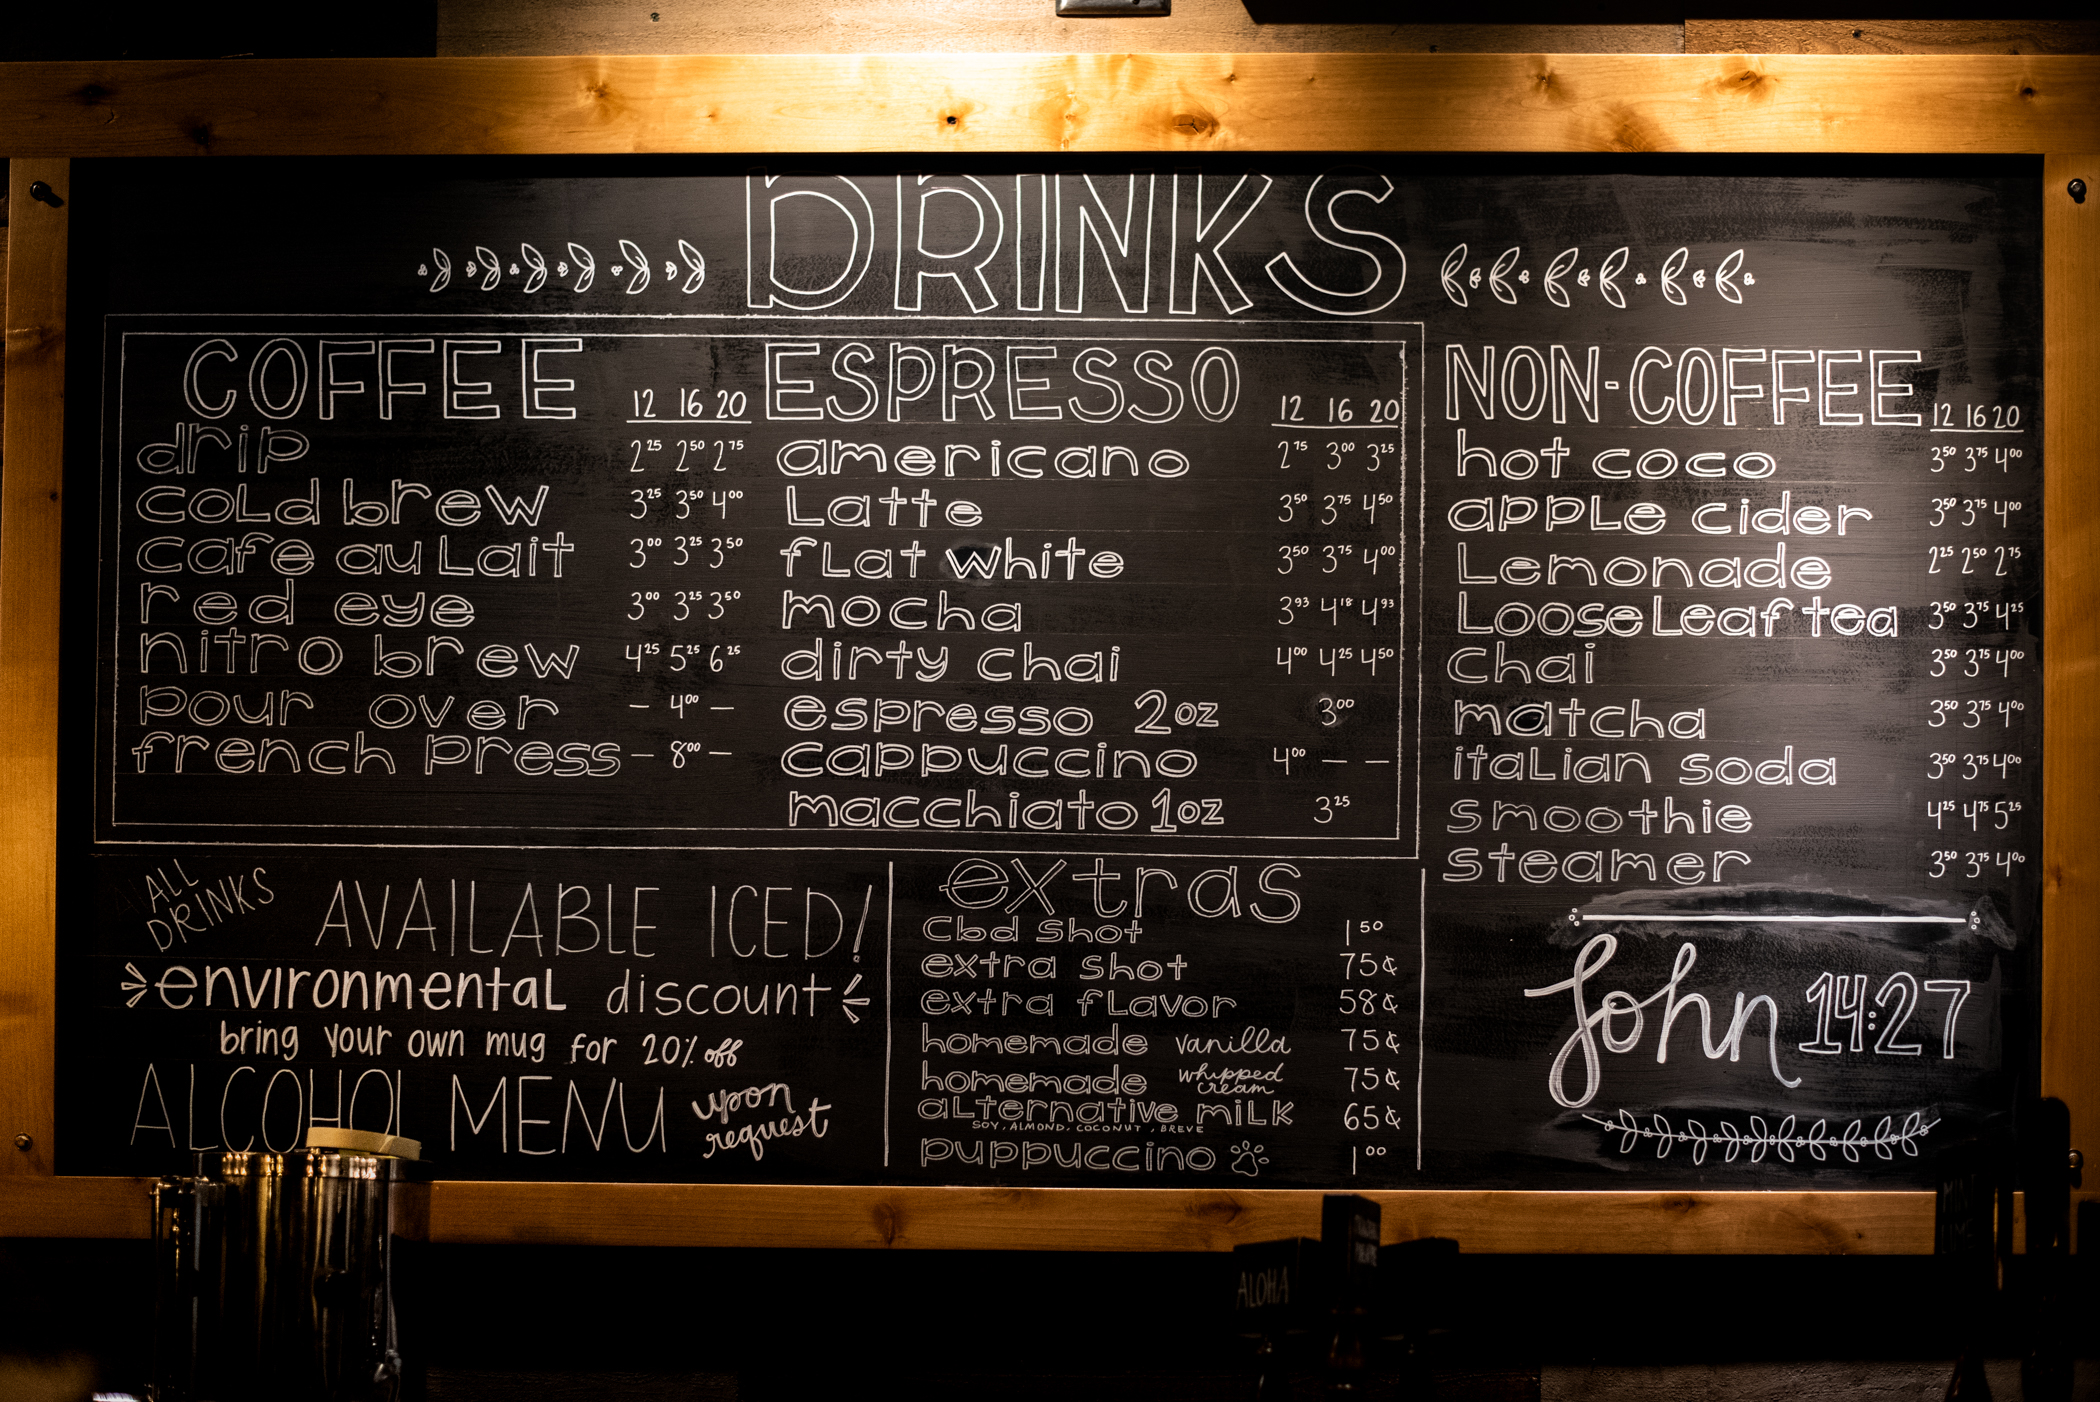 DRINKS
COFFEE 12 16 20
drip 2²⁵ 2⁵⁰ 2⁷⁵
coLd brew 3²⁵ 3⁵⁰ 4⁰⁰
cafe au Lait 3⁰⁰ 3²⁵ 3⁵⁰
red eye 3⁰⁰ 3²⁵ 3⁵⁰
nitro brew 4²⁵ 5²⁵ 6²⁵
pour over — 4⁰⁰ —
french press — 8⁰⁰ —
ESPRESSO 12 16 20
americano 2⁷⁵ 3⁰⁰ 3²⁵
Latte 3⁵⁰ 3⁷⁵ 4⁵⁰
fLat white 3⁵⁰ 3⁷⁵ 4⁰⁰
mocha 3⁹³ 4¹⁸ 4⁹³
dirty chai 4⁰⁰ 4²⁵ 4⁵⁰
espresso 2oz 3⁰⁰
cappuccino 4⁰⁰ — —
macchiato 1oz 3²⁵
NON-COFFEE 12 16 20
hot coco 3⁵⁰ 3⁷⁵ 4⁰⁰
appLe cider 3⁵⁰ 3⁷⁵ 4⁰⁰
Lemonade 2²⁵ 2⁵⁰ 2⁷⁵
Loose Leaf tea 3⁵⁰ 3⁷⁵ 4²⁵
chai 3⁵⁰ 3⁷⁵ 4⁰⁰
matcha 3⁵⁰ 3⁷⁵ 4⁰⁰
itaLian soda 3⁵⁰ 3⁷⁵ 4⁰⁰
smoothie 4²⁵ 4⁷⁵ 5²⁵
steamer 3⁵⁰ 3⁷⁵ 4⁰⁰
ALL
DRINKS
AVAILABLE ICED!
environmentaL discount
bring your own mug for 20% off
ALCOHOL MENU upon
request
extras
Cbd shot 1⁵⁰
extra shot 75¢
extra fLavor 58¢
homemade vanilla 75¢
homemade whipped cream 75¢
aLternative miLk 65¢
SOY, ALMOND, COCONUT, BREVE
puppuccino 1⁰⁰
John 14:27
ALOHA